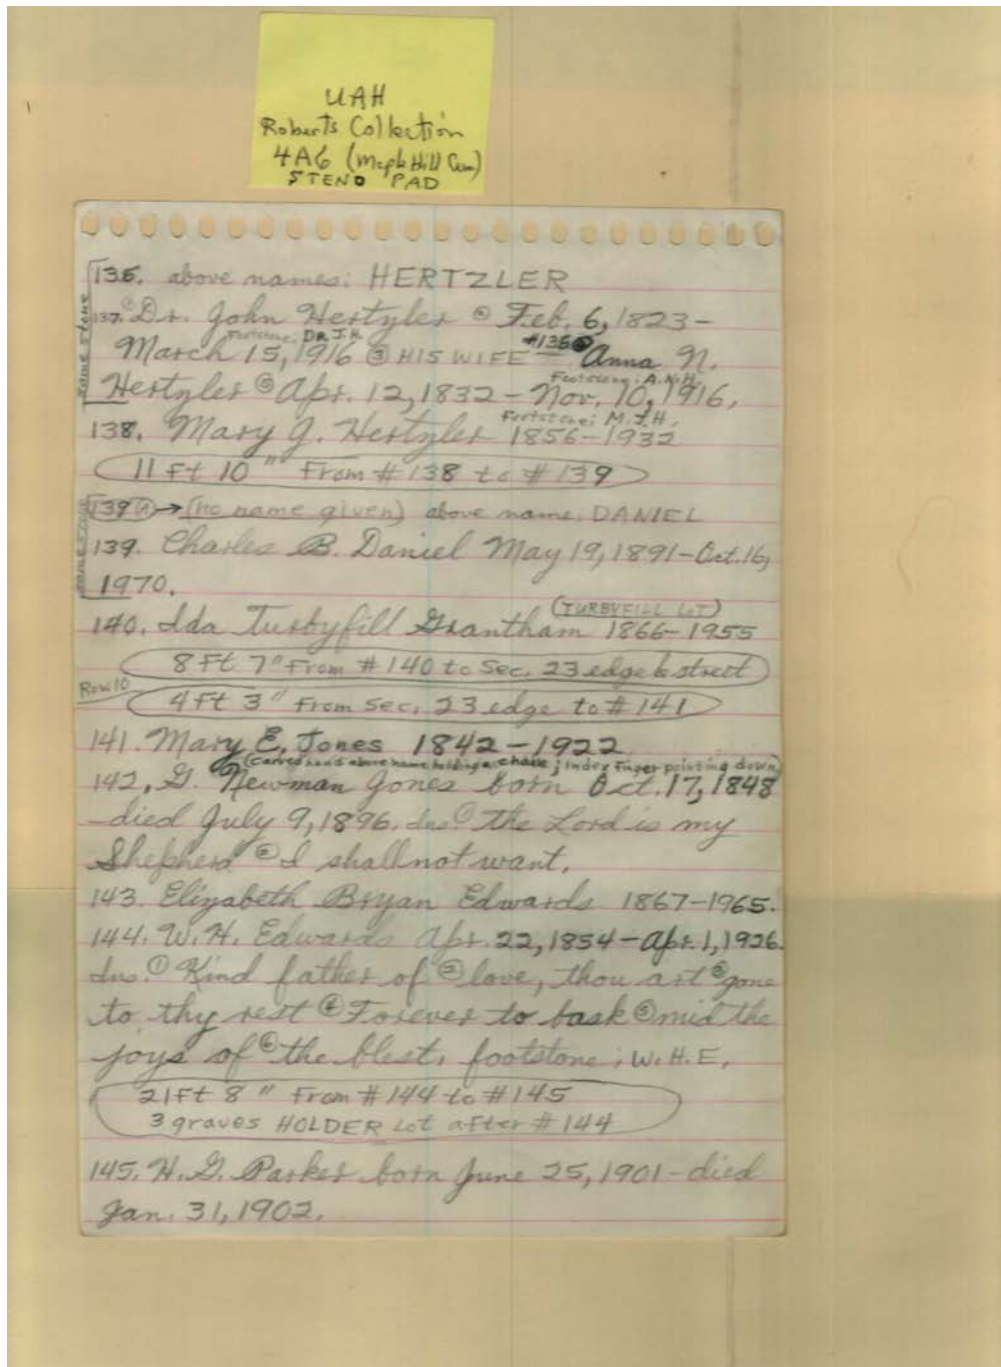 UAH
Roberts Collection
4A6 (Maple Hill Cem)
STENO PAD
136. above names: HERTZLER
same stone
137. ① Dr. John Hertzler ② Feb. 6, 1823–
Footstone: DR. J.H.
March 15, 1916 ③ HIS WIFE — #136 ④ Anna N.
Footstone: A.N.H.
Hertzler ⑤ Apr. 12, 1832 – Nov. 10, 1916.
Footstone: M.J.H.
138. Mary J. Hertzler 1856–1932
11 Ft 10" From #138 to #139
139(A) → (no name given) above name: DANIEL
same stone
139. Charles B. Daniel May 19, 1891–Oct. 16,
1970.
(TURBYFILL LOT)
140. Ida Turbyfill Grantham 1866–1955
8 Ft 7" From #140 to Sec. 23 edge & street
Row 10
4 Ft 3" From Sec. 23 edge to #141
141. Mary E. Jones 1842–1922
(carved hand above name holding a chain; index finger pointing down)
142. G. Newman Jones born Oct. 17, 1848
–died July 9, 1896. Ins. ① The Lord is my
Shepherd ② I shall not want.
143. Elizabeth Bryan Edwards 1867–1965.
144. W. H. Edwards Apr. 22, 1854–Apr. 1, 1926.
Ins. ① Kind father of ② love, thou art ③ gone
to thy rest ④ Forever to bask ⑤ mid the
joys of ⑥ the blest. footstone: W.H.E.
21 Ft 8" From #144 to #145
3 graves HOLDER Lot after #144
145. H. G. Parker born June 25, 1901–died
Jan. 31, 1902.